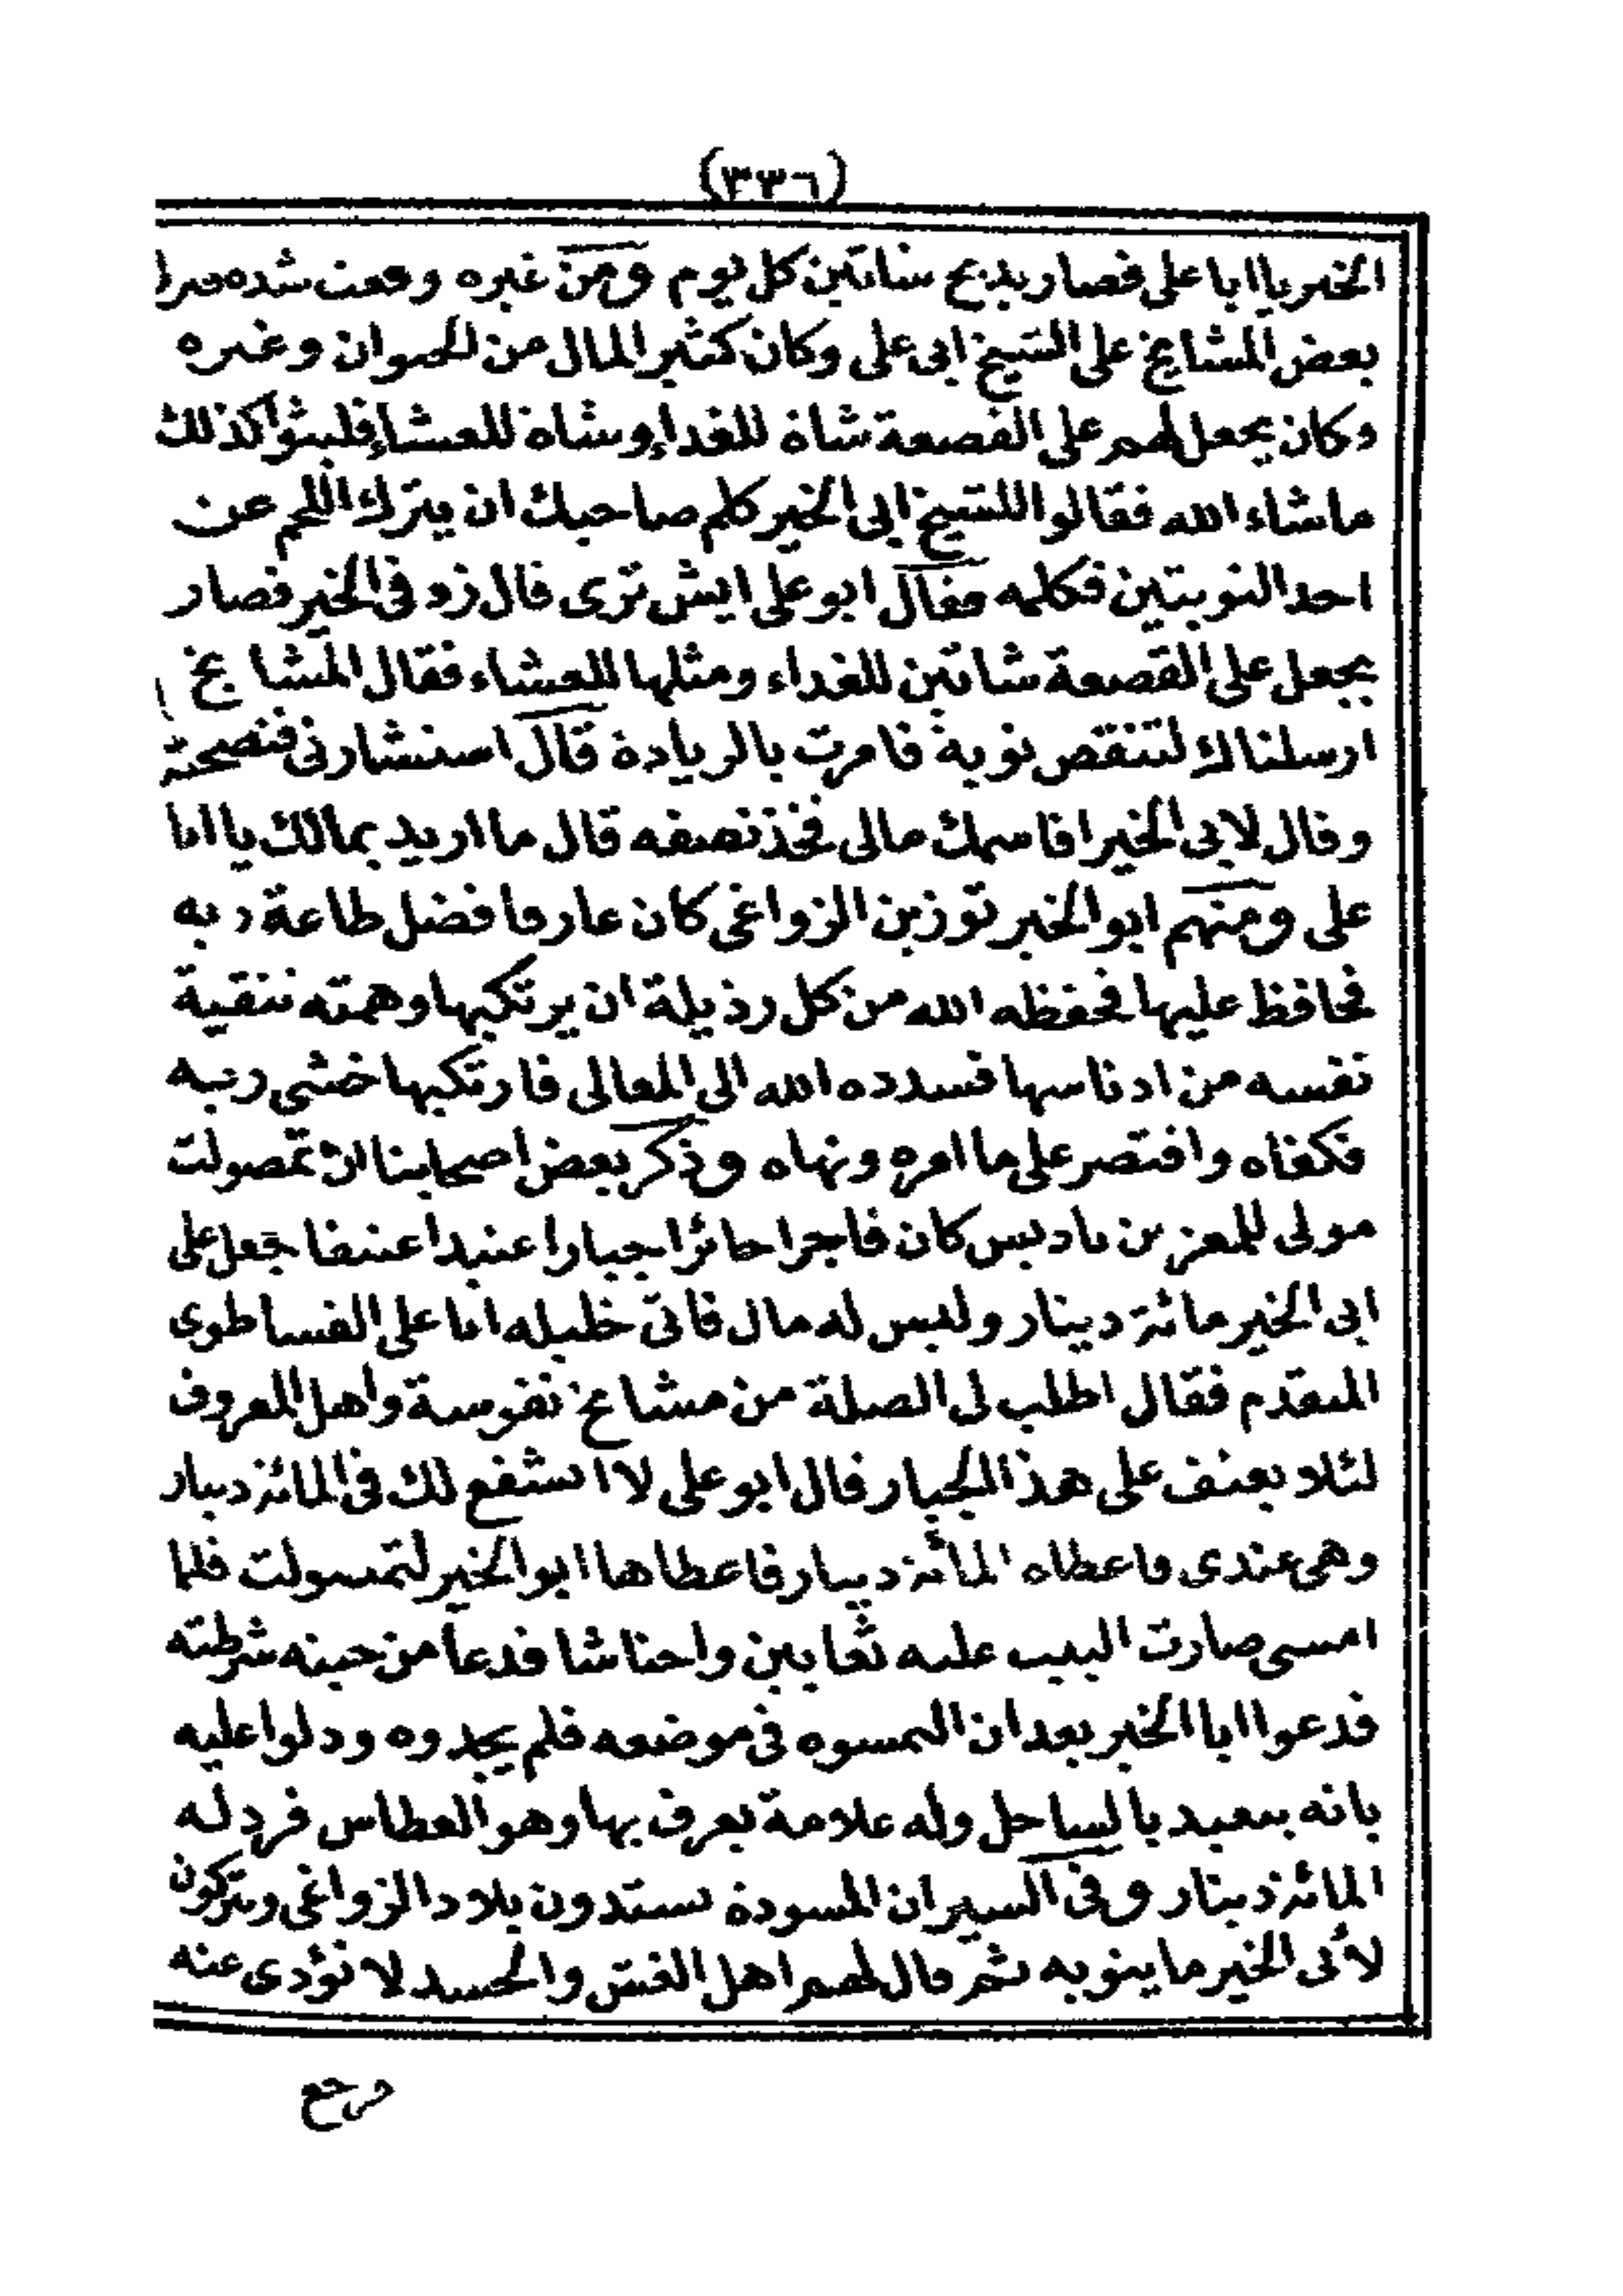 (٣٣٦)
الخير يا ابا على فصار يذبح شاتين كل يوم ومن غيره وقعت شده
بعض المشايخ على الشيخ ابى على وكان كثير المال من الحيوان وغيره
وكان يجعل لهم على القصعة شاة للغداء وشاة للعشاء فلبثوا كذلك
ما شاء الله فقالوا للشيخ ابى الخير كلم صاحبك ان يترك اللحم عن
احد النوبتين فكلمه فقال ابو على ايش ترى قال زد فى الخير فصار
يجعل على القصعة شاتين للغداء ومثلها للعشاء فقال المشايخ
ارسلناك لتنقص نوبة فامرت بالزيادة قال استشارنى فنصحته
وقال لابى الخير اقاسمك مالى فخذ نصفه قال ما اريد بمالك يا ابا
على ومنهم ابو الخير توزين الزواغى كان عارفا فضل طاعة ربه
فحافظ عليها فحفظه الله من كل رذيلة ان يرتكبها وهمته تنقية
نفسه من ادناسها فسدده الله الى المعالى فارتكبها خشى ربه
فكفاه واقتصر على ما امره ونهاه وذكر بعض اصحابنا ان تمصولت
مولى للمعز بن باديس كان فاجرا جائرا جبارا عنيدا عنيفا جعل على
ابى الخير مائة دينار وليس له مال فاتى خليله ابا على الفساطوى
المتقدم فقال اطلب لى الصلة من مشايخ نفوسة واهل المعروف
لئلا يعنف على هذا الجبار قال ابو على لا استشفع لك فى المائة دينار
وهى عندى فاعطاه المائة دينار فاعطاها ابو الخير لتمسولت فلما
امسى صارت البيت عليه ثعابين واحناشا فدعا من حينه شرطته
فدعوا ابا الخير بعد ان التمسوه فى موضعه فلم يجدوه ودلوا عليه
بانه بسعيد بالساحل وله علامة يعرف بها وهو العطاس فرد له
المائة دينار وفى السير ان المسودة يستدون بلاد الزواغى ويتركون
لأبى الخير ما ينوبه ثم قال لهم اهل الغش والحسد لا نؤدى عنه